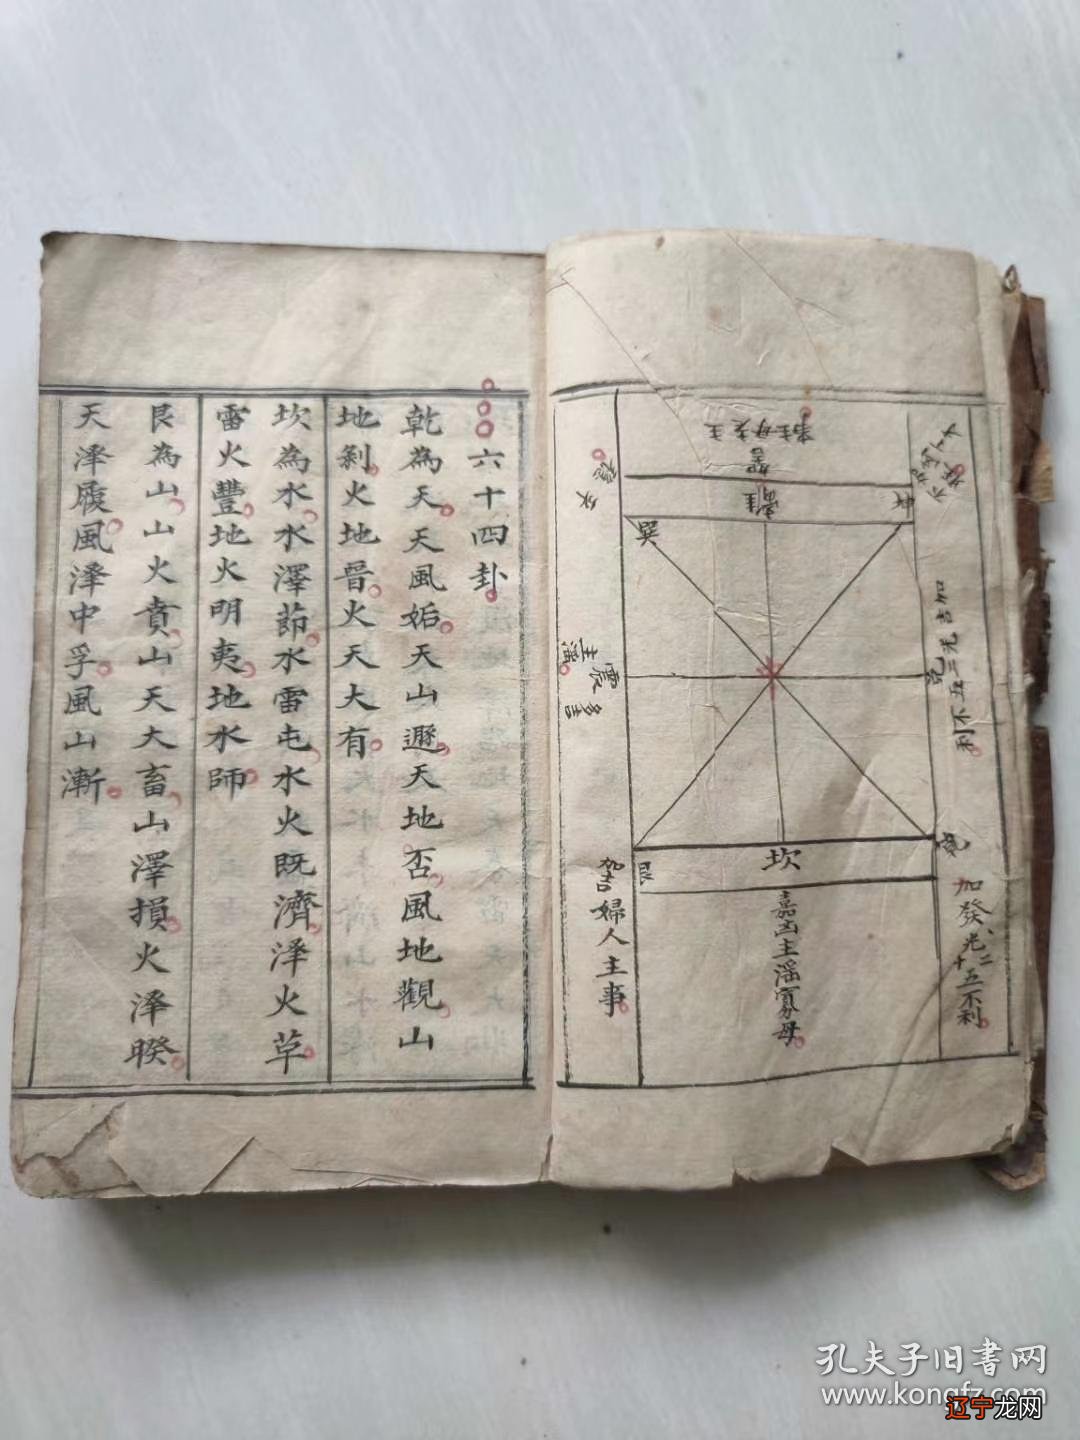 加發光二
十五不利
兌
離
巽
震
坎
嘉凶主滛寡母
婦人主事
六十四卦
乾為天天風姤天山遯天地否風地觀山
地剝火地晉火天大有
坎為水水澤節水雷屯水火既濟泽火草
雷火豐地火明夷地水師
艮為山山火賁山天大畜山澤損火泽暌
天泽履風泽中孚風山漸
孔夫子旧書网
www.kongfz.com
辽宁龙网